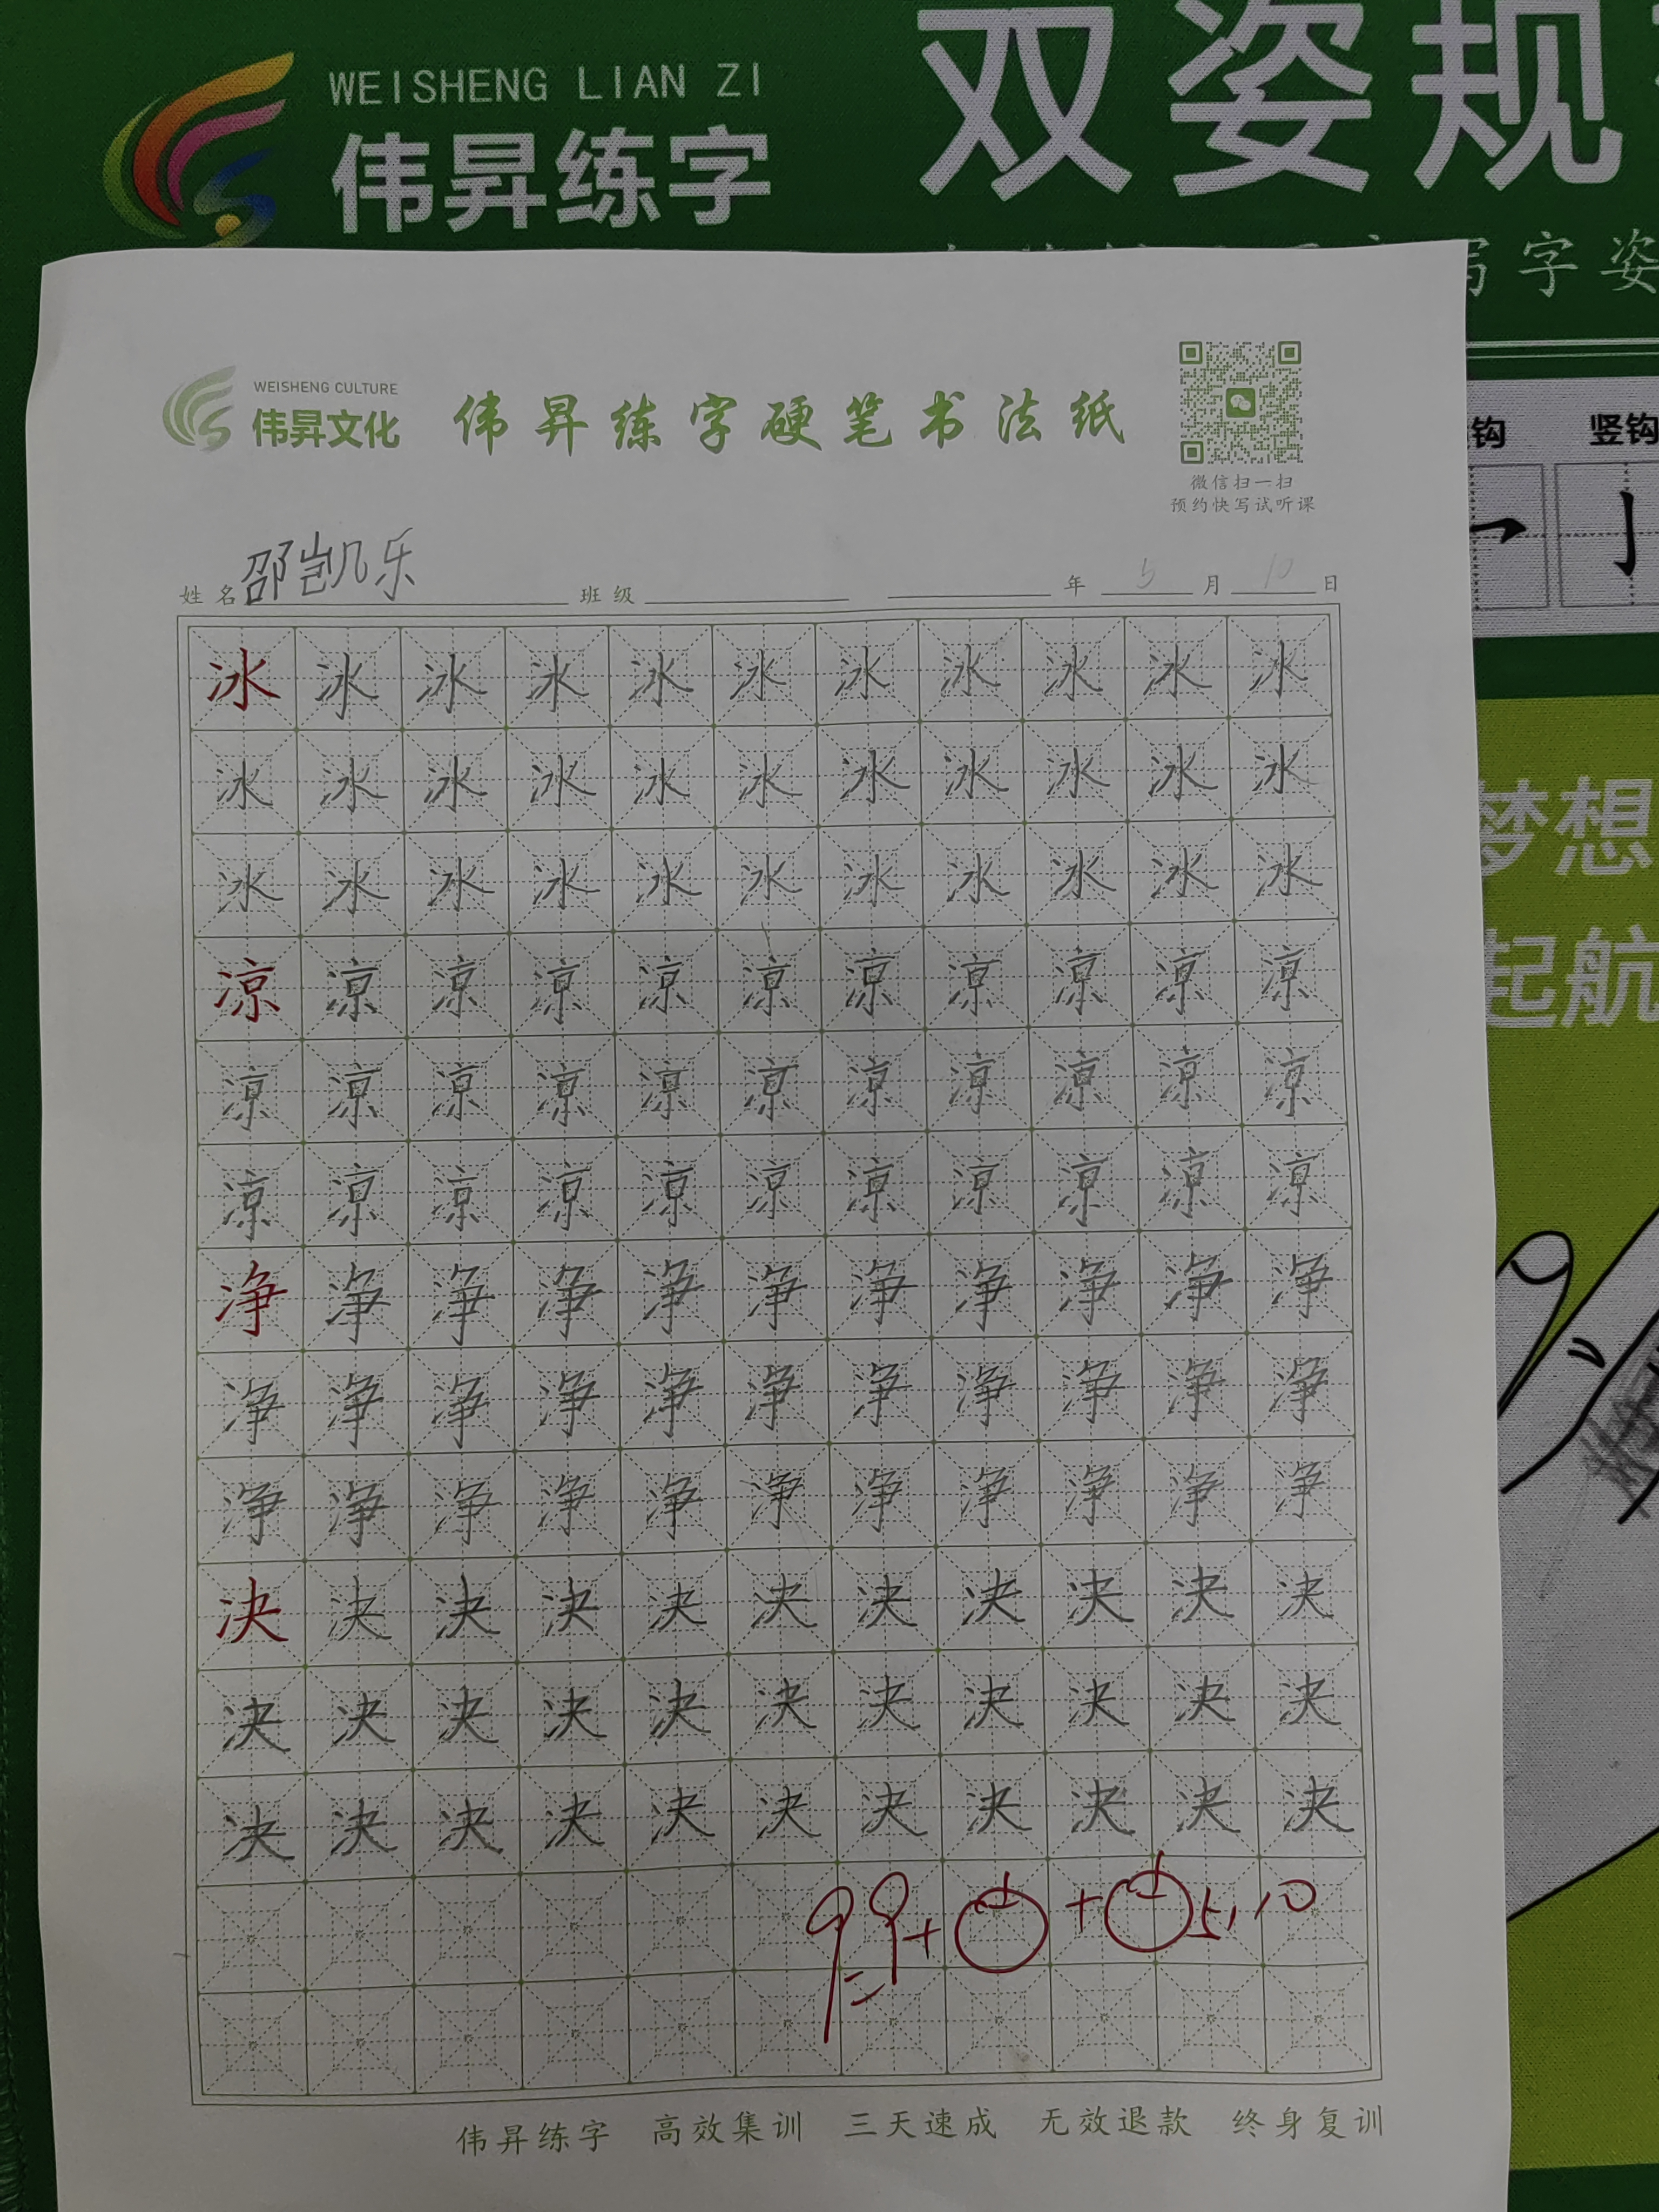 WEISHENG LIAN ZI
伟昇练字
双姿规
写字姿
WEISHENG CULTURE
伟昇文化
伟昇练字硬笔书法纸
微信扫一扫
预约快写试听课
钩 竖钩
姓名 邵凯乐 班级 年 5 月 10 日
冰 冰 冰 冰 冰 冰 冰 冰 冰 冰 冰
冰 冰 冰 冰 冰 冰 冰 冰 冰 冰 冰
冰 冰 冰 冰 冰 冰 冰 冰 冰 冰 冰
凉 凉 凉 凉 凉 凉 凉 凉 凉 凉 凉
凉 凉 凉 凉 凉 凉 凉 凉 凉 凉 凉
凉 凉 凉 凉 凉 凉 凉 凉 凉 凉 凉
净 净 净 净 净 净 净 净 净 净 净
净 净 净 净 净 净 净 净 净 净 净
净 净 净 净 净 净 净 净 净 净 净
决 决 决 决 决 决 决 决 决 决 决
决 决 决 决 决 决 决 决 决 决 决
决 决 决 决 决 决 决 决 决 决 决
99+ + 5.10
梦想
起航
伟昇练字 高效集训 三天速成 无效退款 终身复训